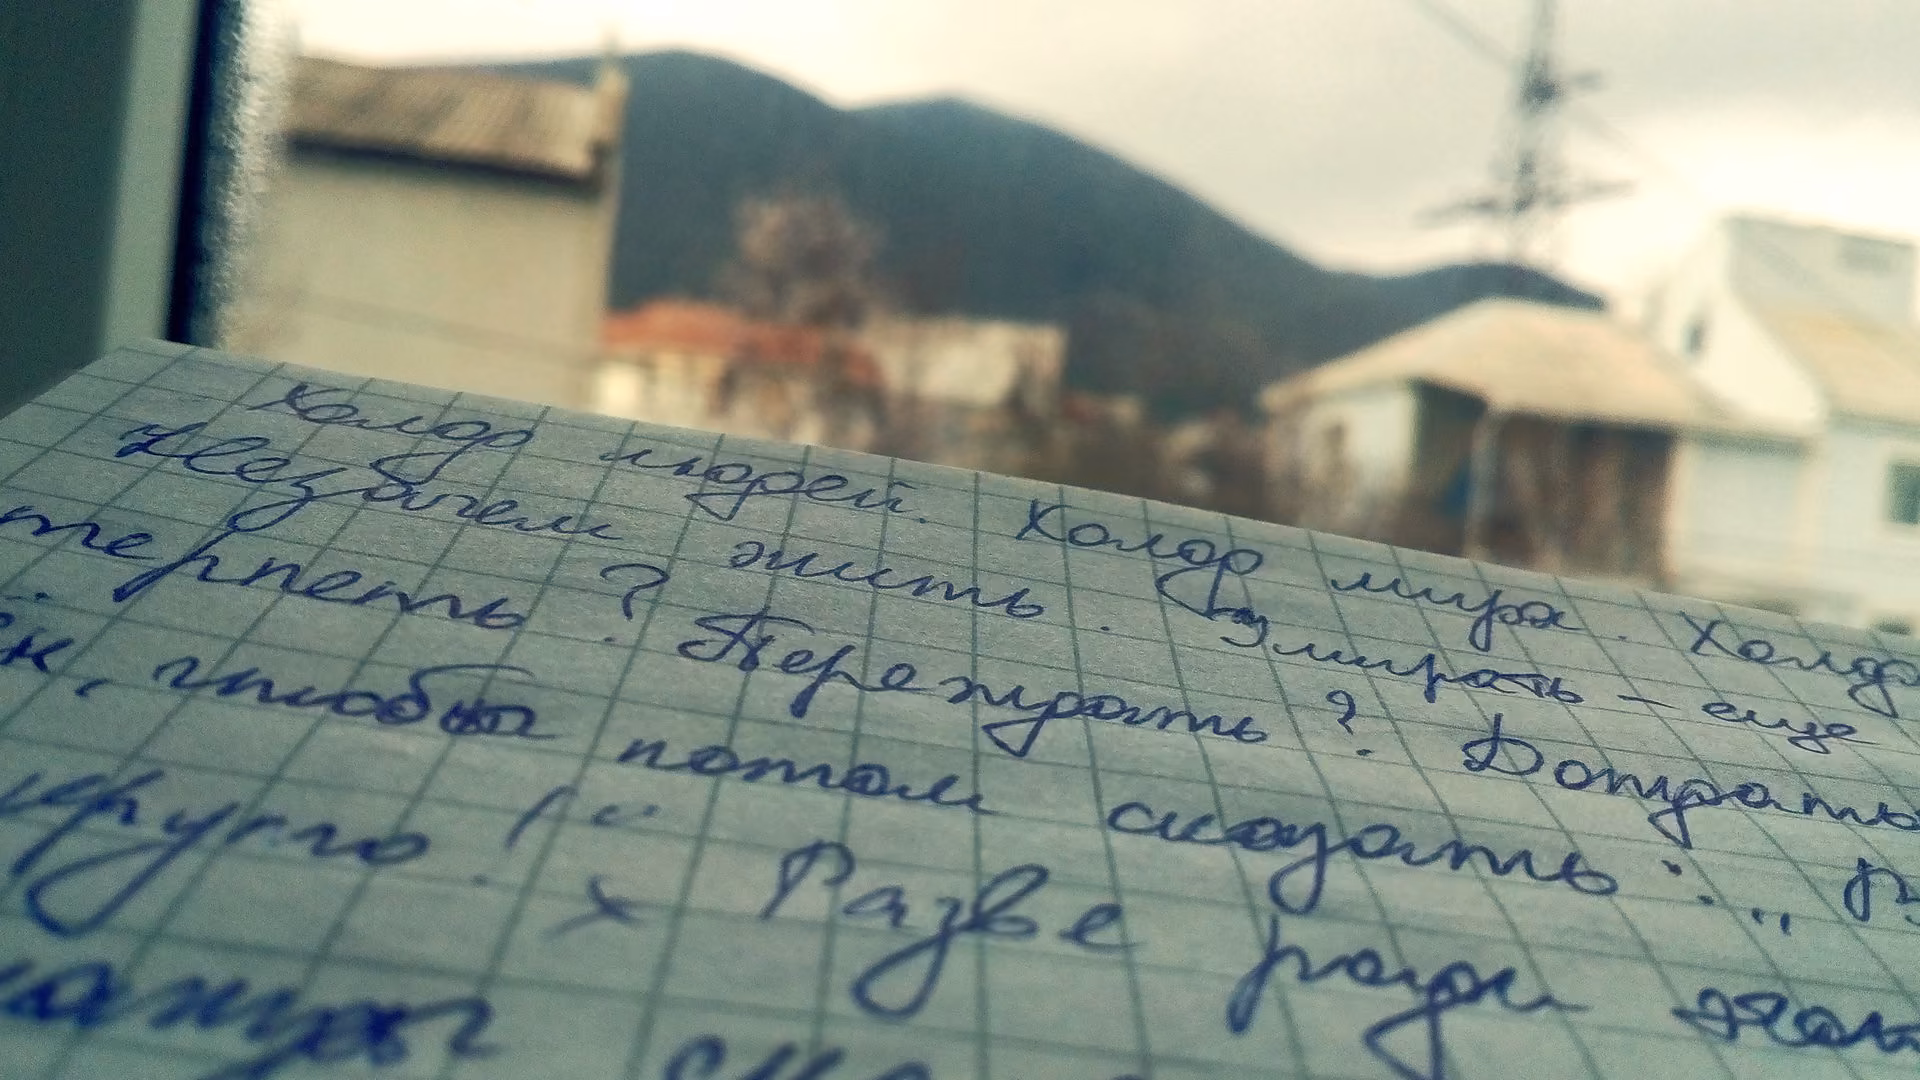 Холод людей. Холод мира. Холод
Незачем жить. Умирать – еще
терпеть? Переждать? Дождать
чтобы потом сказать: „
кругло!“ × Разве ради этого